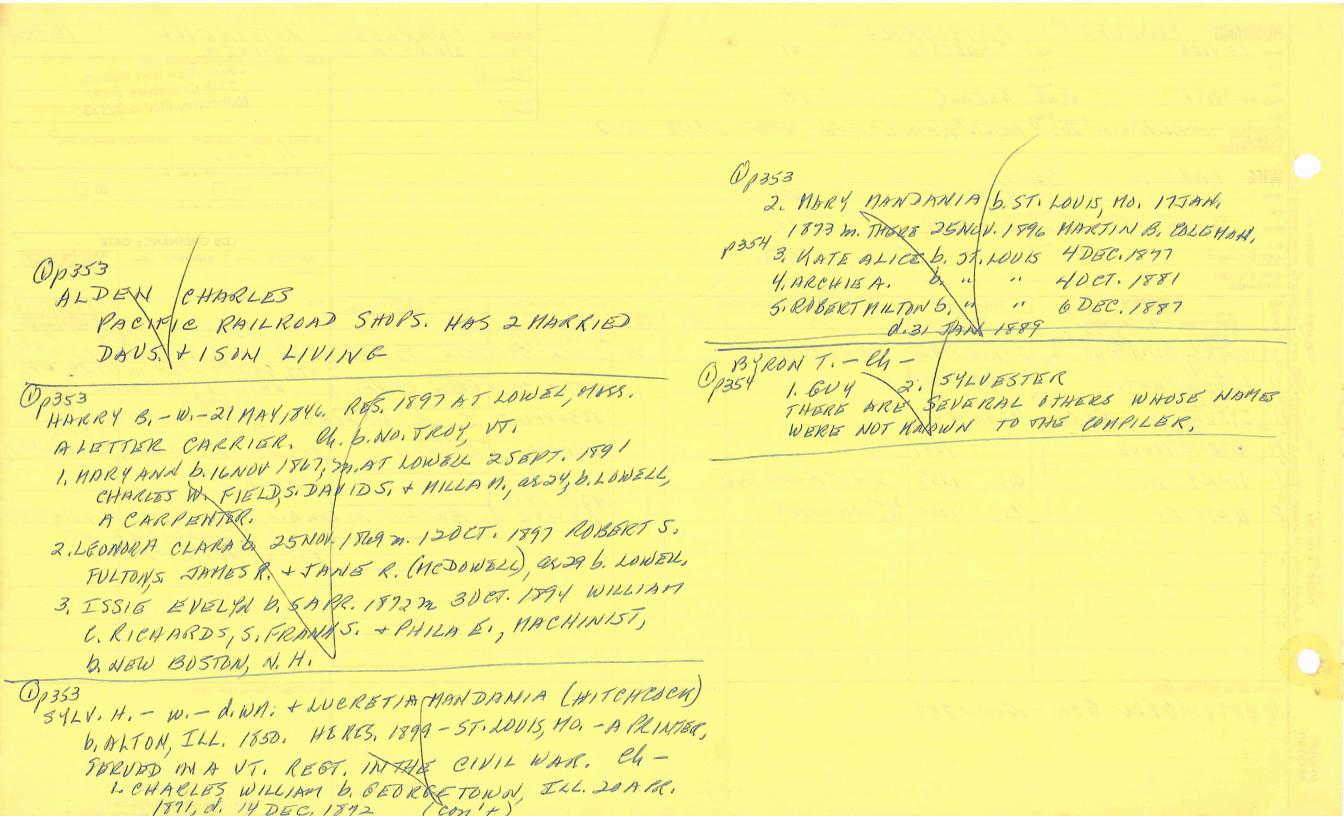 ①p353
ALDEN CHARLES
PACIFIC RAILROAD SHOPS. HAS 2 MARRIED
DAUS. + 1 SON LIVING
①p353
HARRY B. - w. - 21 MAY, 1846. RES. 1897 AT LOWEL, MASS.
A LETTER CARRIER. Ch. b. NO. TROY, VT.
1. MARY ANN b. 16 NOV 1867, m. AT LOWELL 2 SEPT. 1891
CHARLES W. FIELD, S. DAVID S. + MILLA M., ae 24, b. LOWELL,
A CARPENTER.
2. LEONORA CLARA b. 25 NOV. 1869 m. 12 OCT. 1897 ROBERT S.
FULTON, S. JAMES R. + JANE R. (McDOWELL), ae 29 b. LOWELL.
3. ISSIE EVELYN b. 5 APR. 1872 m 3 OCT. 1894 WILLIAM
C. RICHARDS, S. FRANK S. + PHILA E., MACHINIST,
b. NEW BOSTON, N.H.
①p353
SYLV. H. - w. - d. WM. + LUCRETIA MANDANIA (HITCHCOCK)
b. ALTON, ILL. 1850. HE RES. 1899 - ST. LOUIS, MO. - A PRINTER,
SERVED IN A VT. REGT. IN THE CIVIL WAR. Ch -
1. CHARLES WILLIAM b. GEORGETOWN, ILL. 20 APR.
1871, d. 14 DEC. 1872 (con't)
①p353
2. MARY MANDANIA b. ST. LOUIS, MO. 17 JAN.
1873 m. THERE 25 NOV. 1896 MARTIN B. COLEMAN.
p354 3. KATE ALICE b. ST. LOUIS 4 DEC. 1877
4. ARCHIE A. b. " " 4 OCT. 1881
5. ROBERT MILTON b. " " 6 DEC. 1887
d. 31 JAN 1889
① BYRON T. - Ch -
p354 1. GUY 2. SYLVESTER
THERE ARE SEVERAL OTHERS WHOSE NAMES
WERE NOT KNOWN TO THE COMPILER.